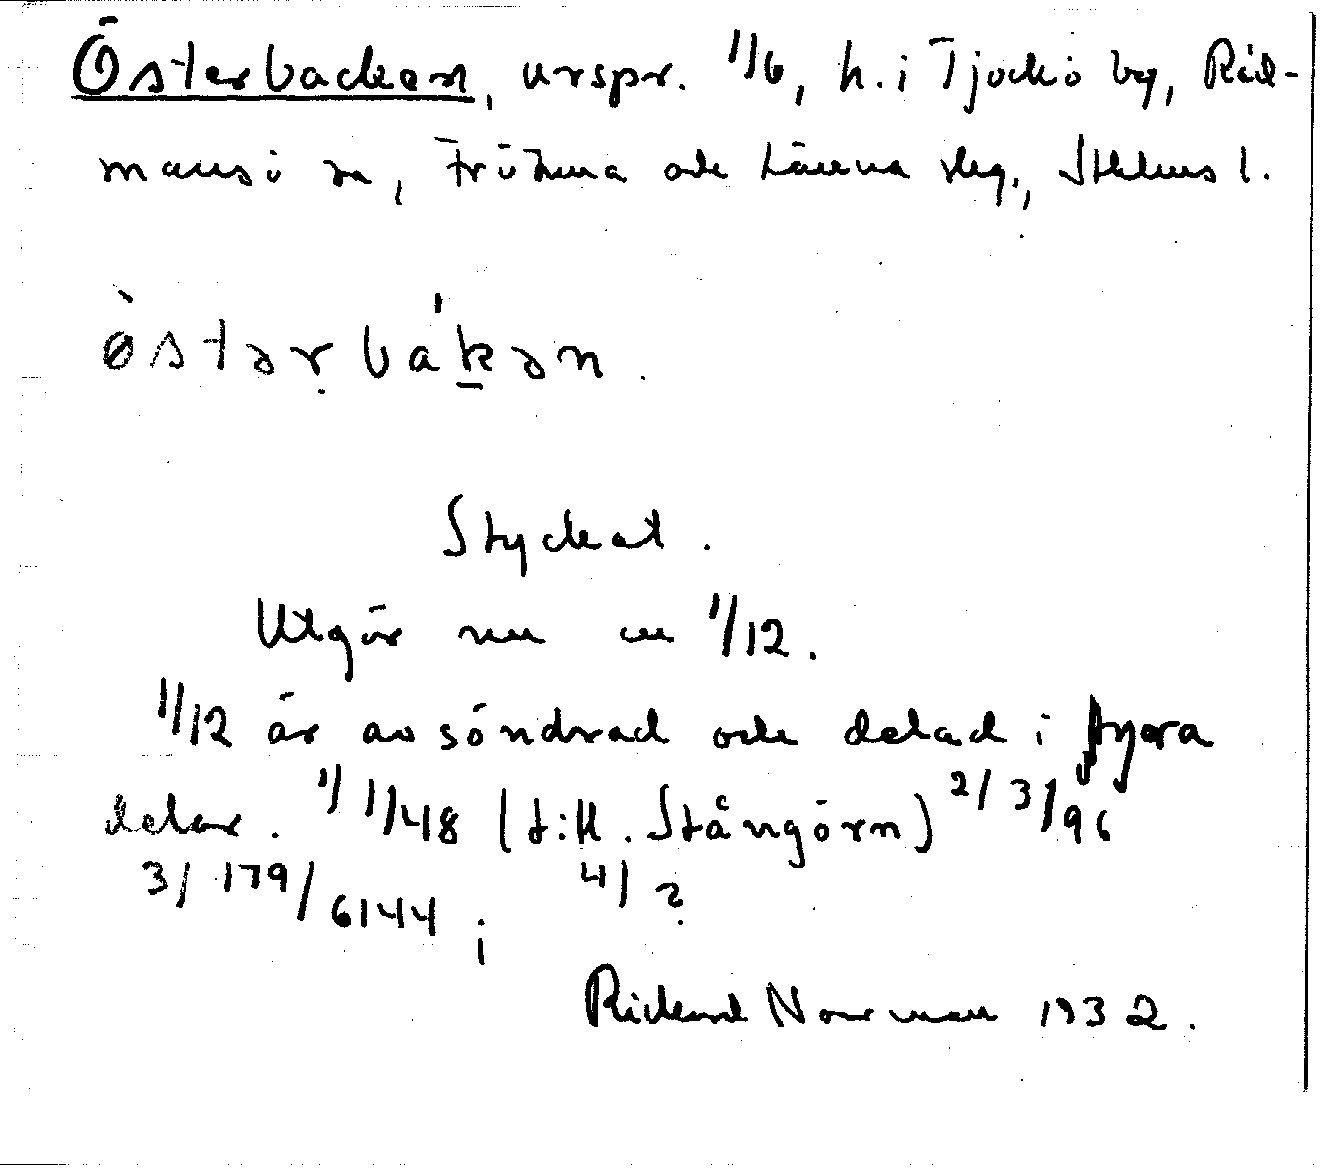 Österbacken, urspr. 1/6, h. i Tjockö by, Råd-
mansö sn, Frötuna och Länna skg., Sthlms l.
ò̀stərbákən.
Styckat.
Utgör nu en 1/12.
1/12 är avsöndrad och delad i fyra
delar. 1/ 1/48 (till. Stångörn) 2/ 3/96
3/ 179/6144; 4/ ?
Rickard Norrman 1932.